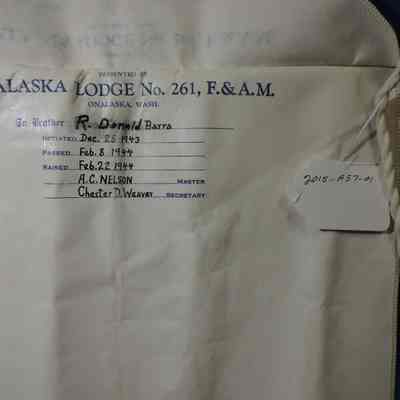 PRESENTED BY
ALASKA LODGE No. 261, F. & A.M.
ONALASKA, WASH.
To Brother R. Donald Barra
INITIATED Dec. 25 1943
PASSED Feb. 8 1944
RAISED Feb. 22 1944
A.C. NELSON MASTER
Chester D. Weaver SECRETARY
2015-A57-01